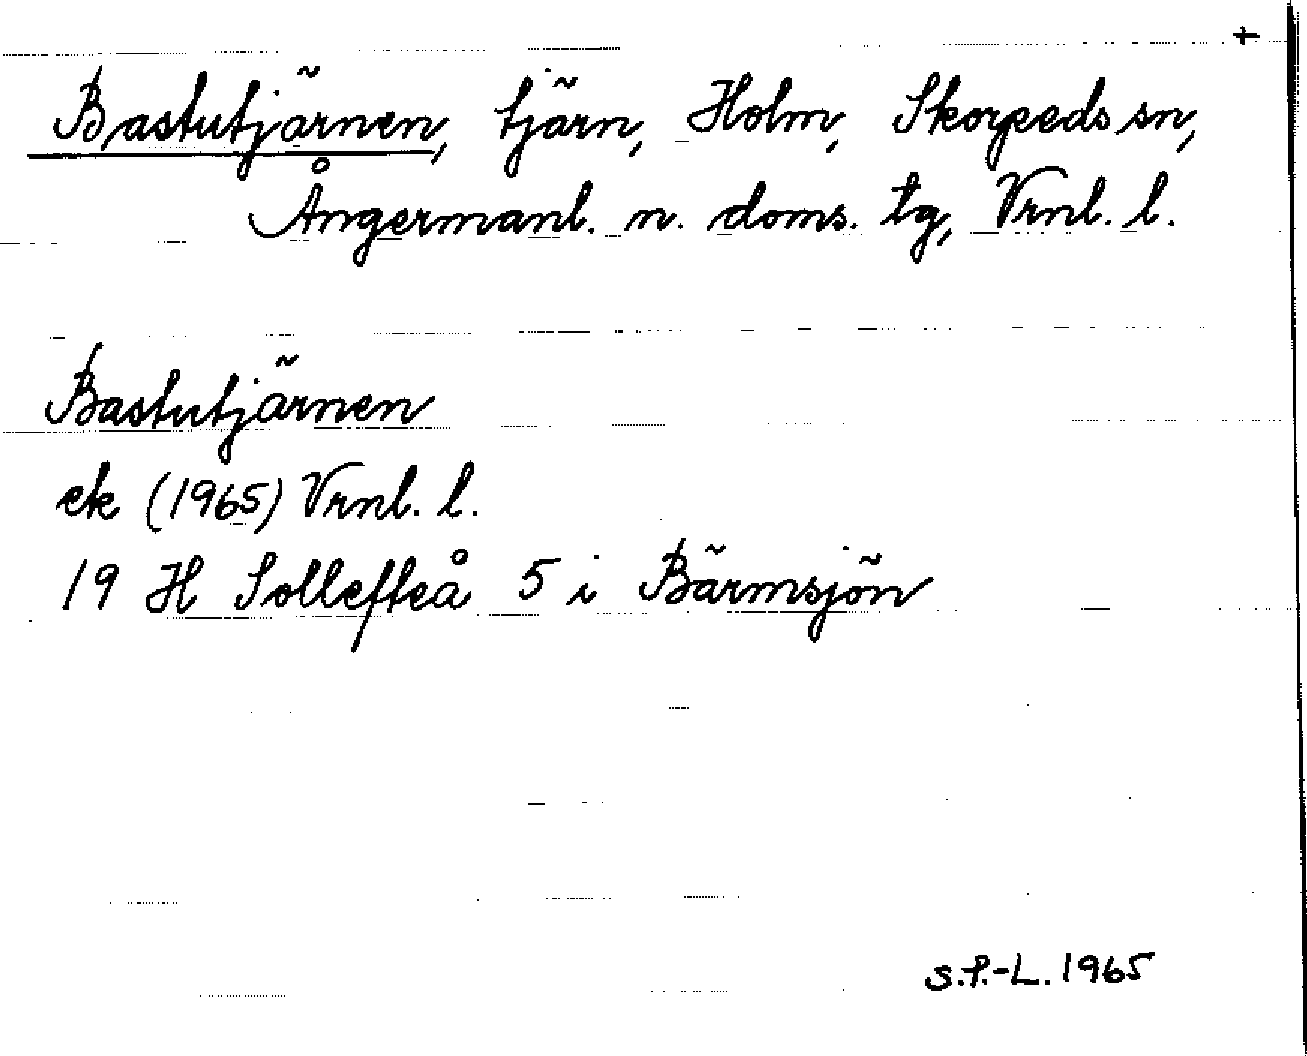 +
Bastutjärnen, tjärn, Holm, Skorpeds sn,
Ångermanl. n. doms. tg, Vrnl. l.
Bastutjärnen
ek (1965) Vrnl. l.
19 H Sollefteå 5 i Bärmsjön
S.P.-L. 1965